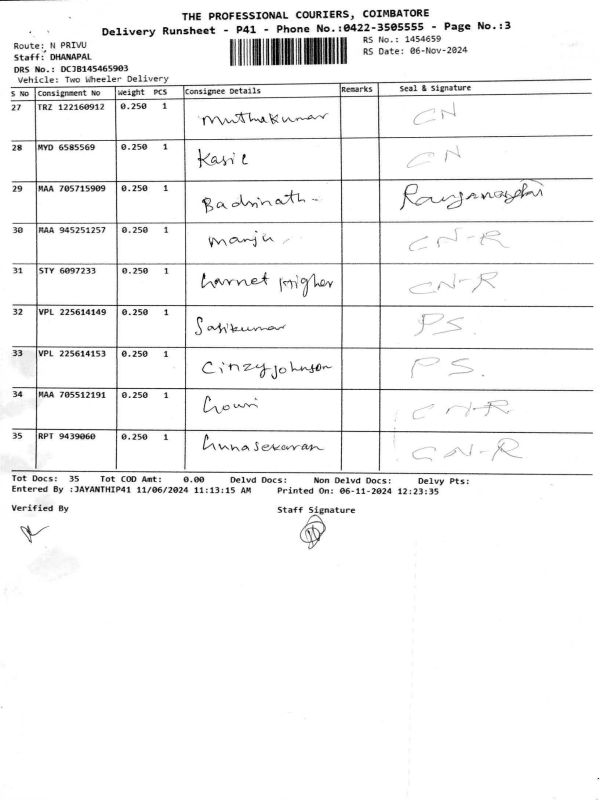 THE PROFESSIONAL COURIERS, COIMBATORE
Delivery Runsheet - P41 - Phone No.:0422-3505555 - Page No.:3
Route: N PRIVU RS No.: 1454659
Staff: DHANAPAL RS Date: 06-Nov-2024
DRS No.: DCJB145465903
Vehicle: Two Wheeler Delivery
S No Consignment No Weight PCS Consignee Details Remarks Seal & Signature
27 TRZ 122160912 0.250 1 Muthukumar CN
28 MYD 6585569 0.250 1 CN
29 MAA 705715909 0.250 1 Badrinath
30 MAA 945251257 0.250 1 Manju CN-R
31 STY 6097233 0.250 1 Higher CN-R
32 VPL 225614149 0.250 1 Sasikumar PS.
33 VPL 225614153 0.250 1 Cinzy Johnson PS.
34 MAA 705512191 0.250 1 CN-R
35 RPT 9439060 0.250 1 Gunasekaran CN-R
Tot Docs: 35 Tot COD Amt: 0.00 Delvd Docs: Non Delvd Docs: Delvy Pts:
Entered By :JAYANTHIP41 11/06/2024 11:13:15 AM Printed On: 06-11-2024 12:23:35
Verified By Staff Signature